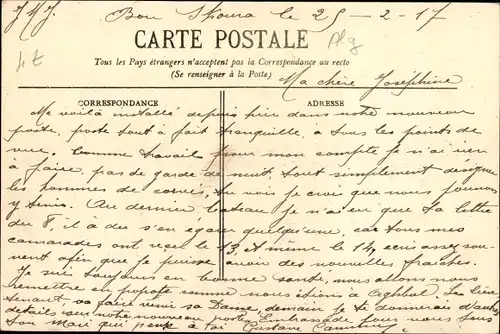 J M J. Bou Skoura le 25-2-17
CARTE POSTALE
Alg
Tous les Pays étrangers n'acceptent pas la Correspondance au recto
(Se renseigner à la Poste)
Ma chère Joséphine
CORRESPONDANCE
ADRESSE
Me voilà installé depuis hier dans notre nouveau
poste, poste tout à fait tranquille, à tous les points de
vue. Comme travail pour mon compte je n'ai rien
à faire, pas de garde de nuit, tout simplement désigner
les hommes de corvées, tu vois je crois que nous pouvons
y tenir. Au dernier bateau je n'ai eu que ta lettre
du 8, il a du s'en égarer quelqu'une, car tous mes
camarades ont reçu le 13, et même le 14, écris assez sou-
vent afin que je puisse avoir des nouvelles fraîches.
Je suis toujours en bonne santé, nous allons nous
remettre en popote comme nous étions à Aghbal. Le lieu-
tenant, va faire venir sa Dame, demain je te donnerai d'autres
détails sur notre nouveau poste. Embrasse pour nous tous
ton Mari qui pense à toi Gustave